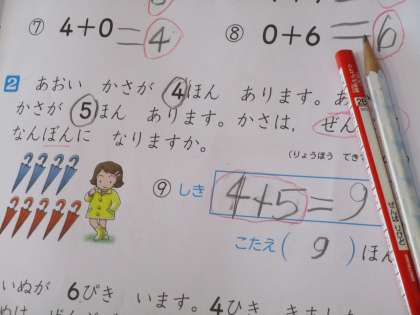 ⑦ 4+0=4
⑧ 0+6=6
2 あおい かさが 4ほん あります。あ
かさが 5ほん あります。かさは、ぜん
なんぼんに なりますか。
(りょうほう でき
⑨ しき 4+5=9
こたえ( 9 )ほん
いぬが 6ぴき います。4ひき